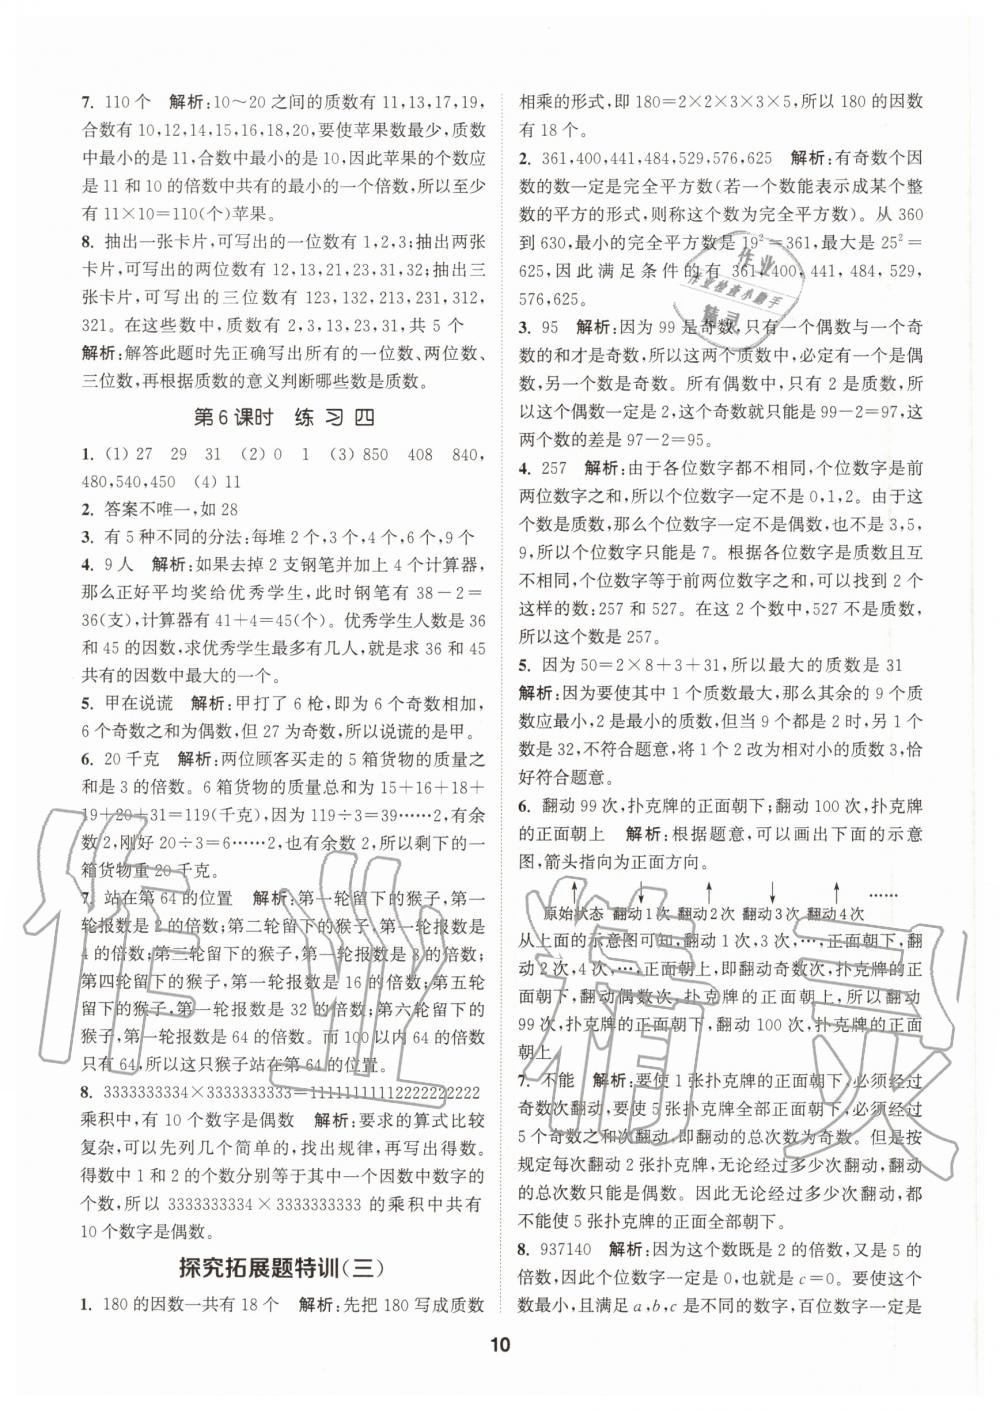 7. 110个　解析:10～20之间的质数有11,13,17,19,
合数有10,12,14,15,16,18,20,要使苹果数最少,质数
中最小的是11,合数中最小的是10,因此苹果的个数应
是11和10的倍数中共有的最小的一个倍数,所以至少
有11×10=110(个)苹果。
8. 抽出一张卡片,可写出的一位数有1,2,3;抽出两张
卡片,可写出的两位数有12,13,21,23,31,32;抽出三
张卡片,可写出的三位数有123,132,213,231,312,
321。在这些数中,质数有2,3,13,23,31,共5个
解析:解答此题时先正确写出所有的一位数、两位数、
三位数,再根据质数的意义判断哪些数是质数。
第6课时　练习四
1. (1) 27　29　31　(2) 0　1　(3) 850　408　840,
480,540,450　(4) 11
2. 答案不唯一,如28
3. 有5种不同的分法:每堆2个,3个,4个,6个,9个
4. 9人　解析:如果去掉2支钢笔并加上4个计算器,
那么正好平均奖给优秀学生,此时钢笔有38-2=
36(支),计算器有41+4=45(个)。优秀学生人数是36
和45的因数,求优秀学生最多有几人,就是求36和45
共有的因数中最大的一个。
5. 甲在说谎　解析:甲打了6枪,即为6个奇数相加,
6个奇数之和为偶数,但27为奇数,所以说谎的是甲。
6. 20千克　解析:两位顾客买走的5箱货物的质量之
和是3的倍数。6箱货物的质量总和为15+16+18+
19+20+31=119(千克),因为119÷3=39……2,有余
数2,刚好20÷3=6……2,也有余数2,所以剩下的一
箱货物重20千克。
7. 站在第64的位置　解析:第一轮留下的猴子,第一
轮报数是2的倍数;第二轮留下的猴子,第一轮报数是
4的倍数;第三轮留下的猴子,第一轮报数是8的倍数;
第四轮留下的猴子,第一轮报数是16的倍数;第五轮
留下的猴子,第一轮报数是32的倍数;第六轮留下的
猴子,第一轮报数是64的倍数。而100以内64的倍数
只有64,所以这只猴子站在第64的位置。
8. 3333333334×3333333333=11111111112222222222
乘积中,有10个数字是偶数　解析:要求的算式比较
复杂,可以先列几个简单的,找出规律,再写出得数。
得数中1和2的个数分别等于其中一个因数中数字的
个数,所以3333333334×3333333333的乘积中共有
10个数字是偶数。
探究拓展题特训(三)
1. 180的因数一共有18个　解析:先把180写成质数
相乘的形式,即180=2×2×3×3×5,所以180的因数
有18个。
2. 361,400,441,484,529,576,625　解析:有奇数个因
数的数一定是完全平方数(若一个数能表示成某个整
数的平方的形式,则称这个数为完全平方数)。从360
到630,最小的完全平方数是19²=361,最大是25²=
625,因此满足条件的有361,400,441,484,529,
576,625。
3. 95　解析:因为99是奇数,只有一个偶数与一个奇
数的和才是奇数,所以这两个质数中,必定有一个是偶
数,另一个数是奇数。所有偶数中,只有2是质数,所
以这个偶数一定是2,这个奇数就只能是99-2=97,这
两个数的差是97-2=95。
4. 257　解析:由于各位数字都不相同,个位数字是前
两位数字之和,所以个位数字一定不是0,1,2。由于这
个数是质数,那么个位数字一定不是偶数,也不是3,5,
9,所以个位数字只能是7。根据各位数字是质数且互
不相同,个位数字等于前两位数字之和,可以找到2个
这样的数:257和527。在这2个数中,527不是质数,
所以这个数是257。
5. 因为50=2×8+3+31,所以最大的质数是31
解析:因为要使其中1个质数最大,那么其余的9个质
数应最小,2是最小的质数,但当9个都是2时,另1个
数是32,不符合题意,将1个2改为相对小的质数3,恰
好符合题意。
6. 翻动99次,扑克牌的正面朝下;翻动100次,扑克牌
的正面朝上　解析:根据题意,可以画出下面的示意
图,箭头指向为正面方向。
↑　↓　↑　↓　↑　……
原始状态　翻动1次　翻动2次　翻动3次　翻动4次
从上面的示意图可知,翻动1次,3次,…,正面朝下,翻
动2次,4次,…,正面朝上,即翻动奇数次,扑克牌的正
面朝下,翻动偶数次,扑克牌的正面朝上,所以翻动
99次,扑克牌的正面朝下,翻动100次,扑克牌的正面
朝上。
7. 不能　解析:要使1张扑克牌正面朝下,必须经过
奇数次翻动,要使5张扑克牌全部正面朝下,必须经过
5个奇数之和次翻动,即翻动的总次数为奇数。但是按
规定每次翻动2张扑克牌,无论经过多少次翻动,翻动
的总次数只能是偶数。因此无论经过多少次翻动,都
不能使5张扑克牌的正面全部朝下。
8. 937140　解析:因为这个数既是2的倍数,又是5的
倍数,因此个位上的数字一定是0,也就是c=0。要使这个
数最小,且满足a,b,c是不同的数字,百位数字一定是
10
作业
作业检查小助手
精灵
作业精灵